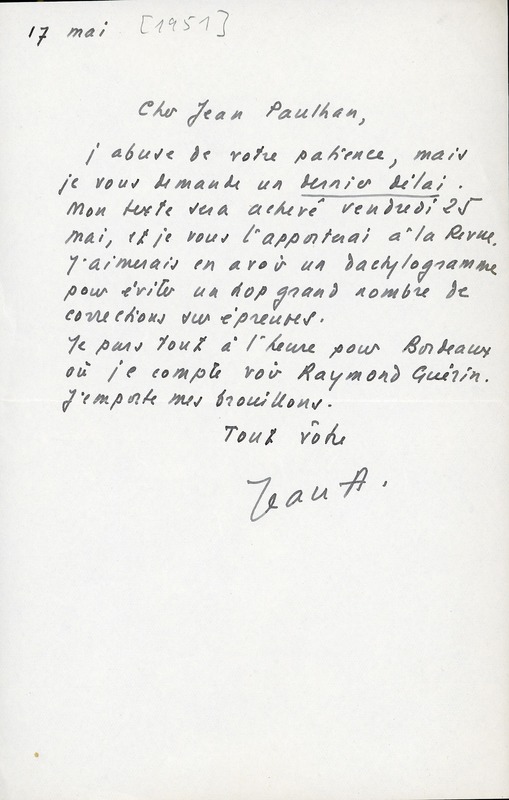 17 mai [1951]
Cher Jean Paulhan,
j'abuse de votre patience, mais
je vous demande un dernier délai.
Mon texte sera achevé vendredi 25
mai, et je vous l'apporterai à la Revue.
J'aimerais en avoir un dactylogramme
pour éviter un trop grand nombre de
corrections sur épreuves.
Je pars tout à l'heure pour Bordeaux
où je compte voir Raymond Guérin.
J'emporte mes brouillons.
Tout vôtre
Jean A.